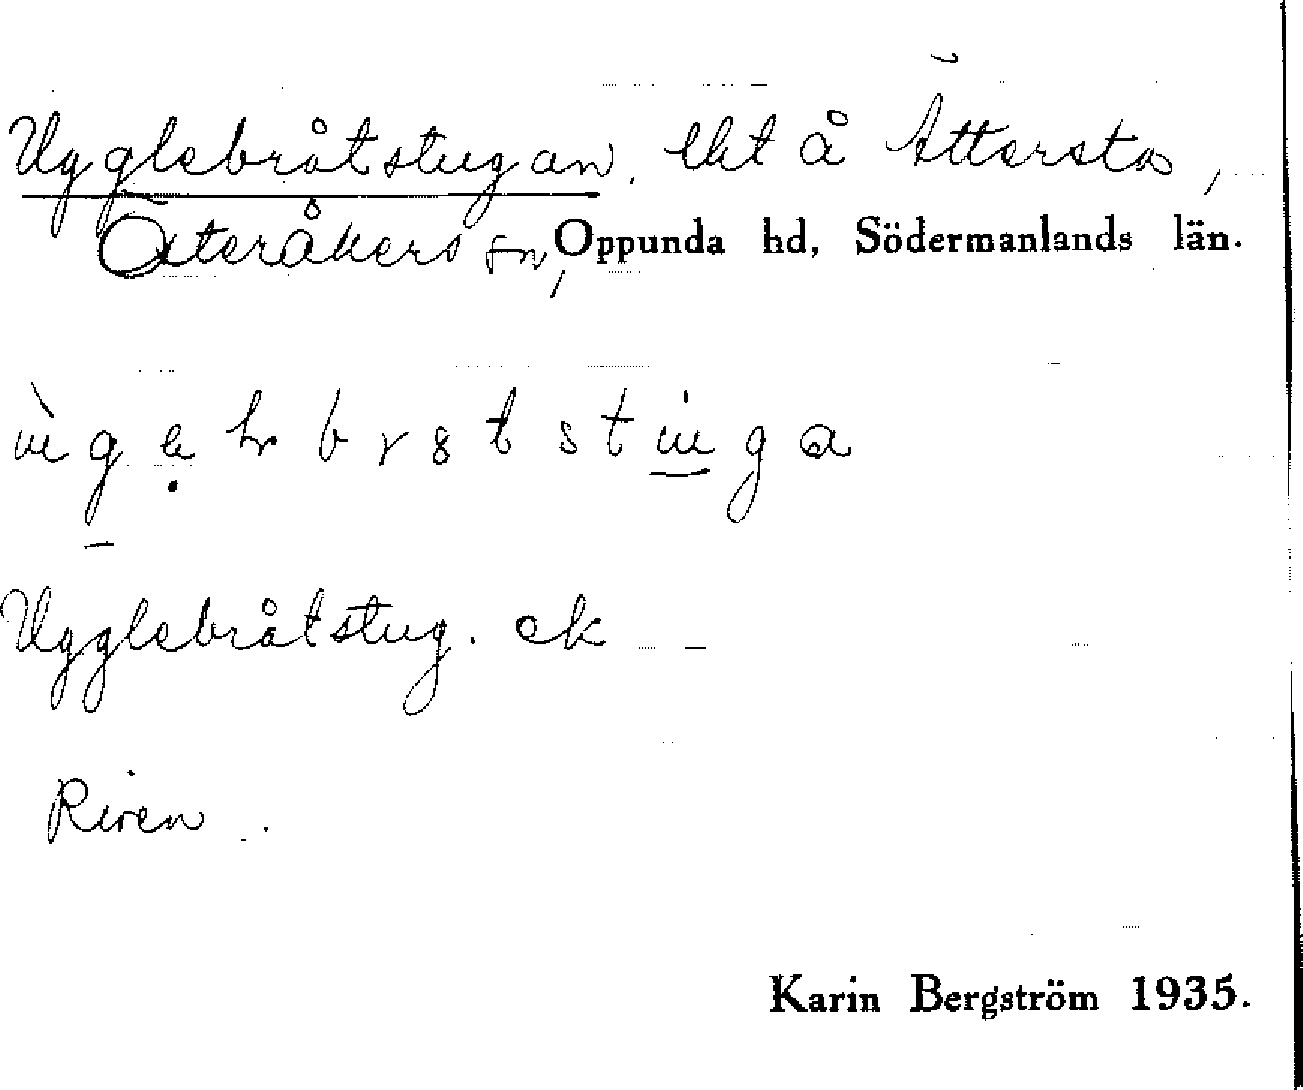 Ugglebråtstugan. lht å Ättersta,
Österåkers sn, Oppunda hd, Södermanlands län.
Ugglebråtstug. ek
Riven.
Karin Bergström 1935.